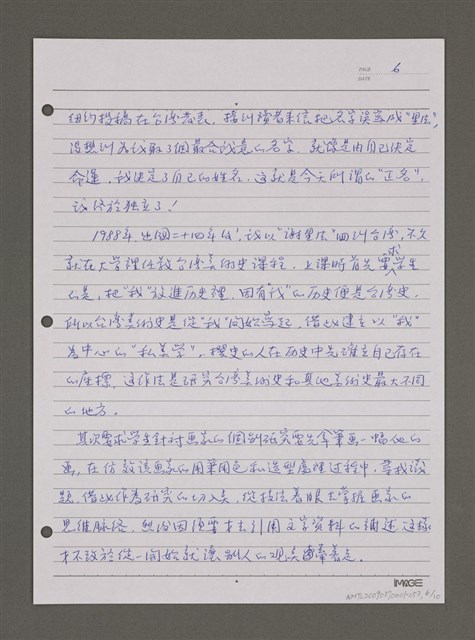 PAGE 6
DATE
紐約投稿在台灣發表，損刊讀者來信把名字誤寫成"里法"，
沒想到為我取了個最合我意的名字，就像是由自己決定
命運，我決定了自己的姓名，這就是今天所謂的"正名"，
我終於獨立了！
1988年，出國二十四年後，我以"謝里法"回到台灣，不久
就在大學裡任教台灣美術史課程，上課時首先要求學生
的是，把"我"放進歷史裡，因有"我"的历史便是台灣史，
所以台灣美術史是從"我"開始寫起，借此建立以"我"
為中心的"私美學"，歷史的人在历史中先確立自己存在
的座標，這作法是研究台灣美術史和其他美術史最大不同
的地方。
其次要求學生針對画家的個別研究要先拿筆画一幅他的
画，在仿效該画家的用筆用色和造型處理過程中，尋找議
題，借此作為研究的切入點，從技法着眼去掌握画家的
思維脈絡，然後因須要才去引用文字資料的論述，這樣
才不致於從一開始就讓別人的觀點牽著走。
IMAGE
NMTL20090510001-057_6/10